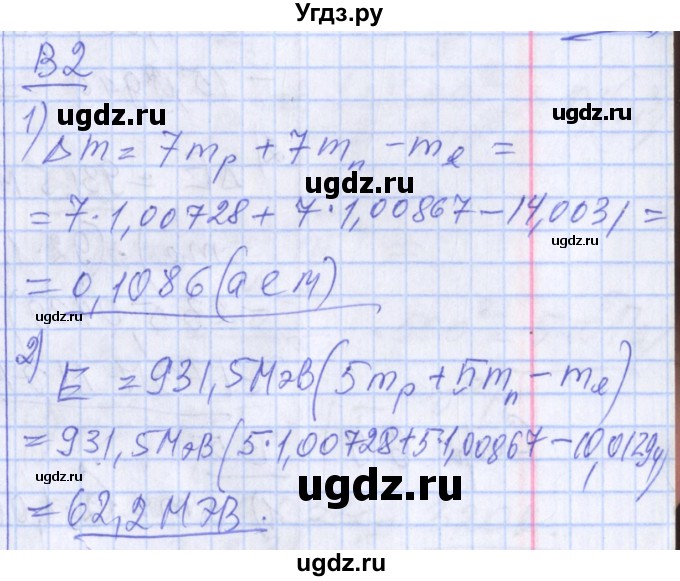 Угдз.ру
В2
ugdz.ru
1) Δm = 7mp + 7mn - mя =
ugdz.ru
= 7·1,00728 + 7·1,00867 - 14,0031 =
ugdz.ru
= 0,1086 (аем)
ugdz.ru
ugdz.ru
2) E = 931,5МэВ(5mp + 5mn - mя)
= 931,5МэВ(5·1,00728+5·1,00867-10,01294)
ugdz.ru
ugdz.ru
= 62,2 МЭВ.
ugdz.ru
ugdz.ru